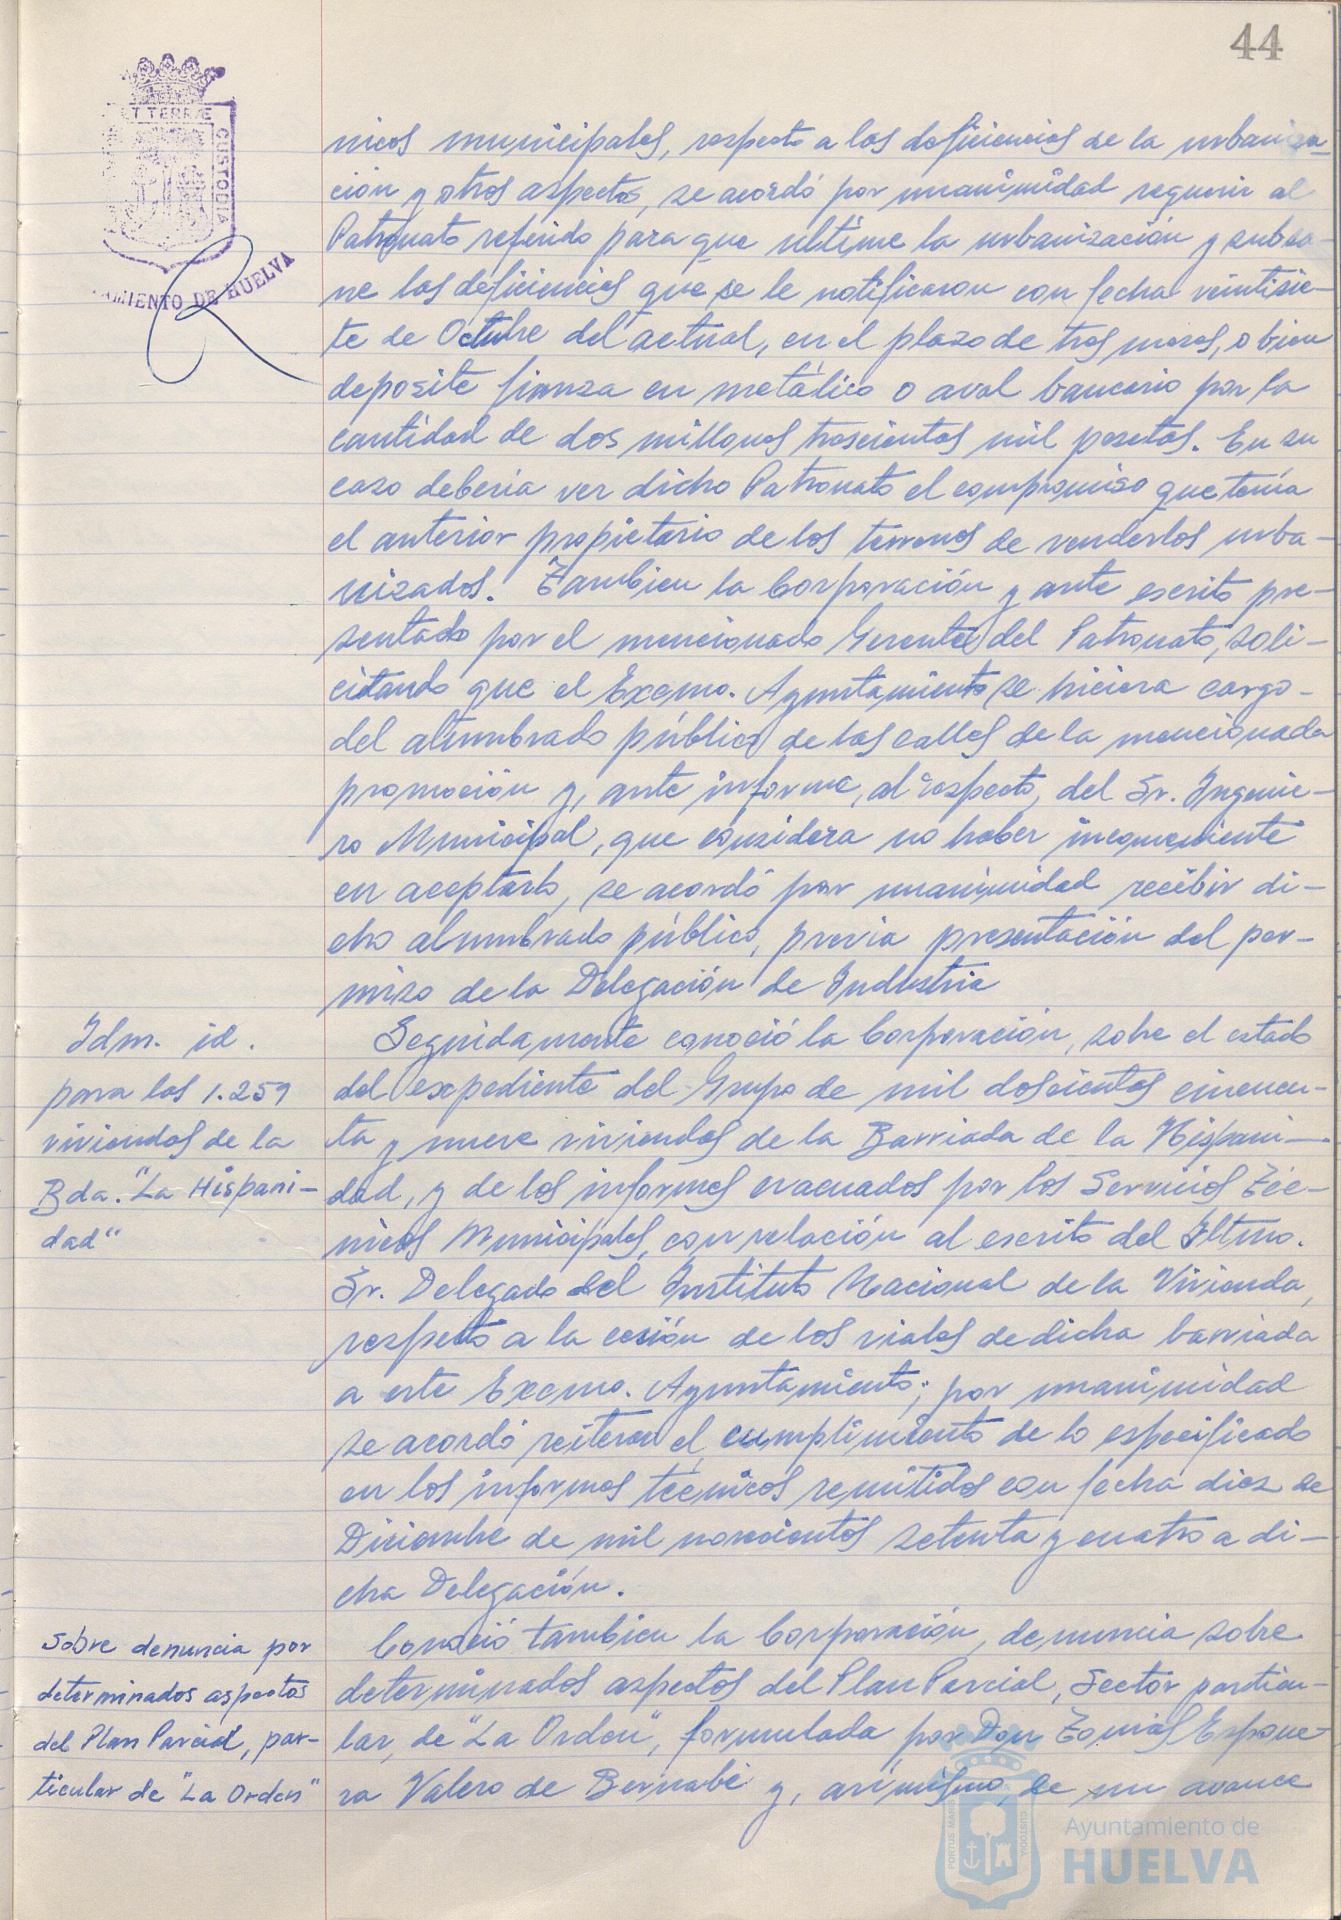 44
ET TERRÆ
CUSTODIA
AMIENTO DE HUELVA
nicos municipales, respecto a las deficiencias de la urbaniza-
ción y otros aspectos, se acordó por unanimidad requerir al
Patronato referido para que ultime la urbanización y subsa-
ne las deficiencias que se le notificaron con fecha veintisie-
te de Octubre del actual, en el plazo de tres meses, o bien
deposite fianza en metálico o aval bancario por la
cantidad de dos millones trescientas mil pesetas. En su
caso debería ver dicho Patronato el compromiso que tenía
el anterior propietario de los terrenos de venderlos urba-
nizados. Tambien la Corporación y ante escrito pre-
sentado por el mencionado Gerente del Patronato, soli-
citando que el Excmo. Ayuntamiento se hiciera cargo-
del alumbrado público de las calles de la mencionada
promoción y, ante informe, al respecto, del Sr. Ingenie-
ro Municipal, que considera no haber inconveniente
en aceptarlo, se acordó por unanimidad recibir di-
cho alumbrado público, previa presentación del per-
miso de la Delegación de Industria
Idm. id.
para las 1.259
viviendas de la
Bda. "La Hispani-
dad"
Seguidamente conoció la Corporación, sobre el estado
del expediente del Grupo de mil doscientas cincuen-
ta y nueve viviendas de la Barriada de la Hispani-
dad, y de los informes evacuados por los Servicios Téc-
nicos Municipales, con relación al escrito del Iltmo.
Sr. Delegado del Instituto Nacional de la Vivienda,
respecto a la cesión de los viales de dicha barriada
a este Excmo. Ayuntamiento; por unanimidad
se acordó reiterar el cumplimiento de lo especificado
en los informes técnicos remitidos con fecha diez de
Diciembre de mil novecientos setenta y cuatro a di-
cha Delegación.
Sobre denuncia por
determinados aspectos
del Plan Parcial, par-
ticular de "La Orden"
Conoció tambien la Corporación, denuncia sobre
determinados aspectos del Plan Parcial, Sector particu-
lar, de "La Orden", formulada por Don Tomás Espone-
ra Valero de Bernabé y, asimismo, de un avance
PORTUS MARIS
CUSTODIA
Ayuntamiento de
HUELVA